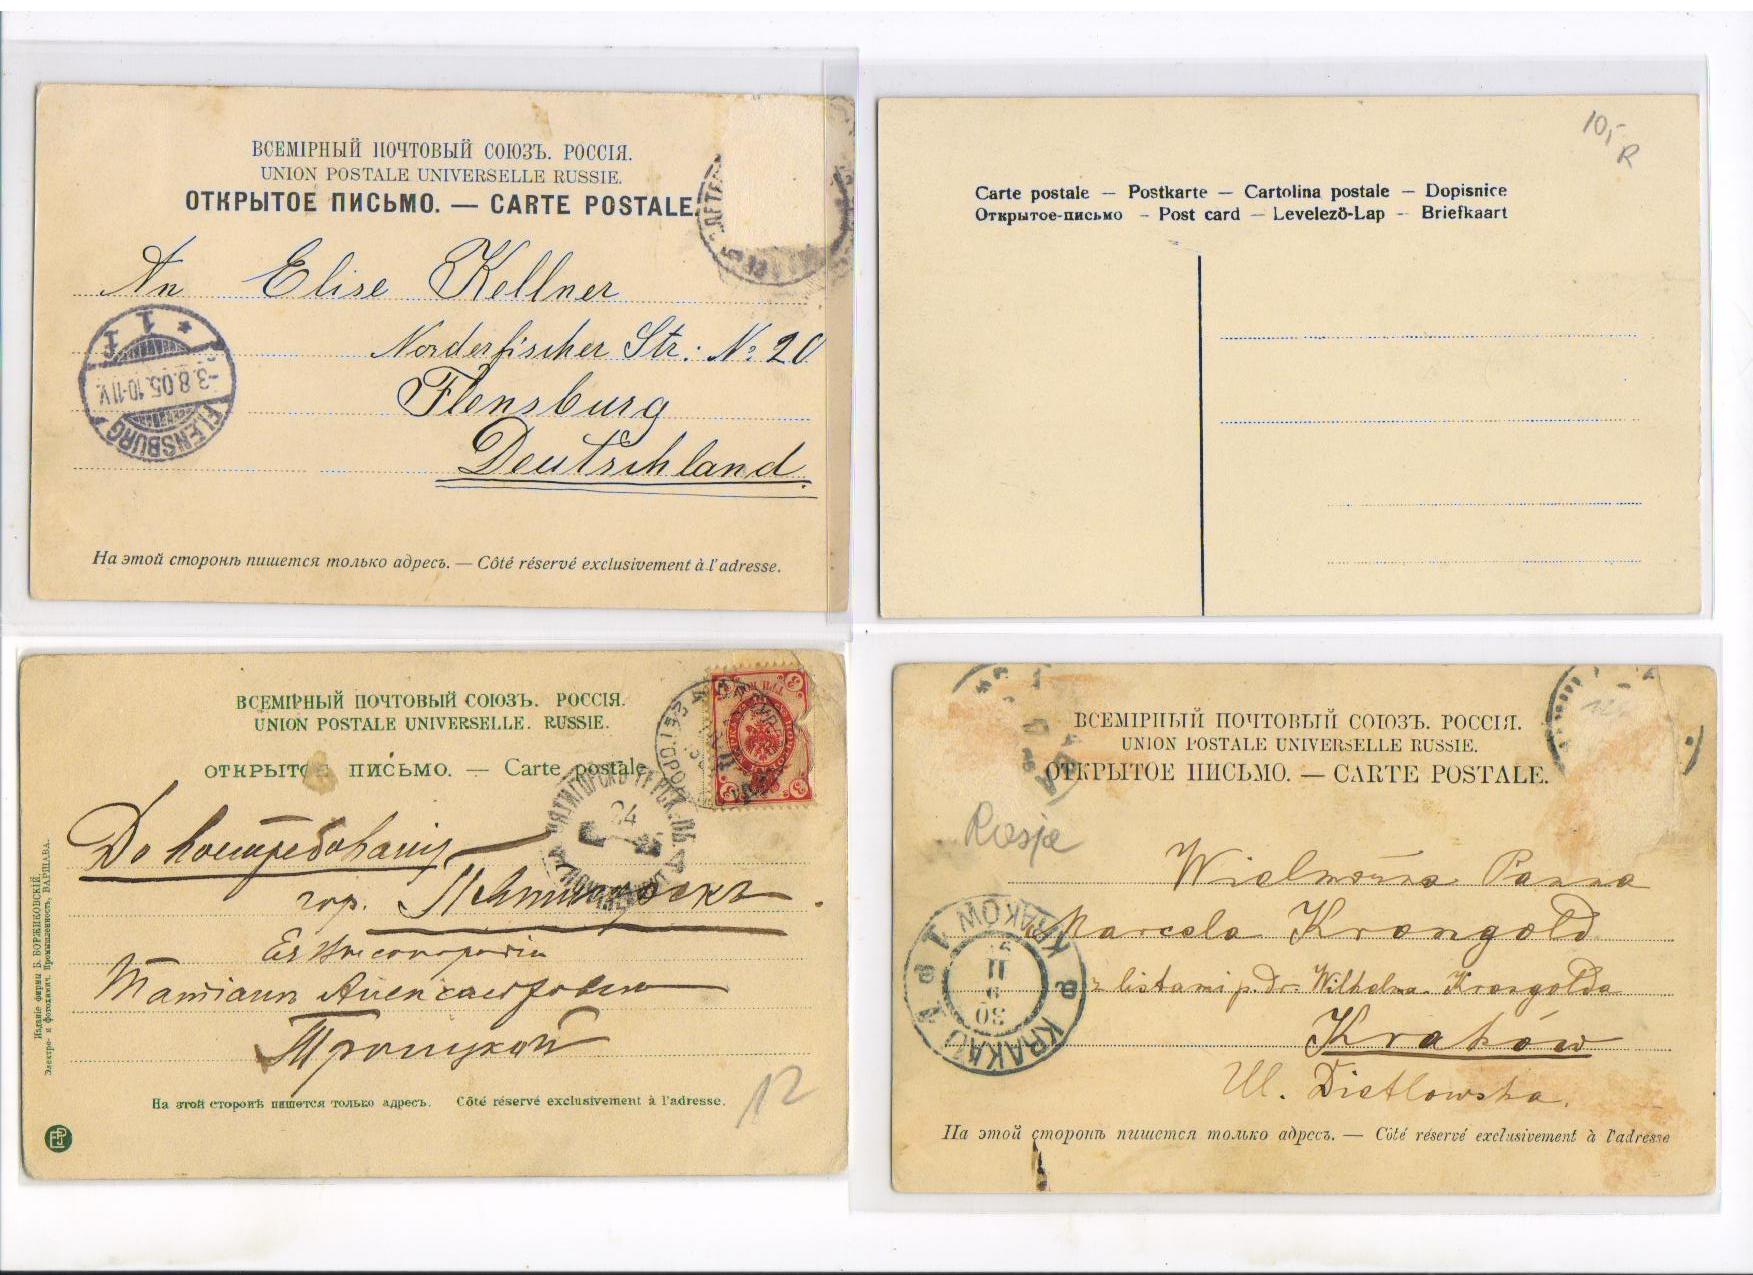 ВСЕМІРНЫЙ ПОЧТОВЫЙ СОЮЗЪ. РОССІЯ.
UNION POSTALE UNIVERSELLE RUSSIE.
ОТКРЫТОЕ ПИСЬМО. — CARTE POSTALE
An Elise Kellner
Norderfischer Str. No 20
Flensburg
Deutschland.
FLENSBURG
-3.8.05.10-11V.
1
На этой сторонѣ пишется только адресъ. — Côté réservé exclusivement à l'adresse.
10,-
R
Carte postale — Postkarte — Cartolina postale — Dopisnice
Открытое-письмо — Post card — Levelező-Lap — Briefkaart
ВСЕМІРНЫЙ ПОЧТОВЫЙ СОЮЗЪ. РОССІЯ.
UNION POSTALE UNIVERSELLE. RUSSIE.
ОТКРЫТОЕ ПИСЬМО. — Carte postale
24
До востребованія
гор.
Татіанѣ Александровнѣ
Троицкой
12
На этой сторонѣ пишется только адресъ. Côté réservé exclusivement à l'adresse.
Изданіе фирмы Б. ВОРЖИКОВСКІЙ.
Электро- и фотохимич. Промышленность, ВАРШАВА.
ВСЕМІРНЫЙ ПОЧТОВЫЙ СОЮЗЪ. РОССІЯ.
UNION POSTALE UNIVERSELLE RUSSIE.
ОТКРЫТОЕ ПИСЬМО. — CARTE POSTALE.
Rosja
Wielmożna Panna
Marcela Krongold
z listami p. dr. Wilhelma Krongolda
Kraków
Ul. Dietlowska.
KRAKÓW
KRAKAU
На этой сторонѣ пишется только адресъ. — Côté réservé exclusivement à l'adresse